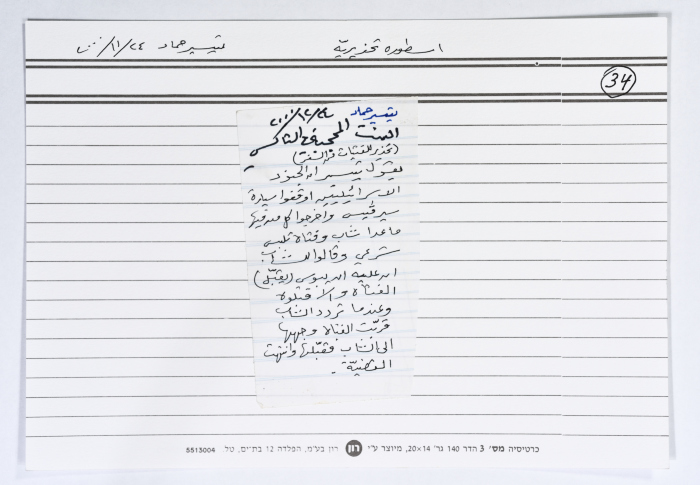 اسطوره تحذيريّة تيسير حماد ٢٤/١١/
34
تيسير حماد ٢٤/١٢/٢٠٠٠
البنت المحجبة في التاكسي
(تحذير للفتيات من السفر)
يقول تيسير ان الجنود
الاسرائيليين اوقفوا سيارة
سيرفيس واخرجوا كل من فيها
ما عدا شاب وفتاة تلبس
شرعي وقالوا للشاب
ان عليه ان يبوس (يقبّل)
الفتاة والا قتلوه
وعندما تردد الشاب
قرّبت الفتاة وجهها
الى الشاب فقبّلها وانتهت
القضيّة.
כרטיסיה מס' 3 הדר 140 גר' 20×14, מיוצר ע"י רון רון בע"מ, הפלדה 12 בת-ים, טל. 5513004